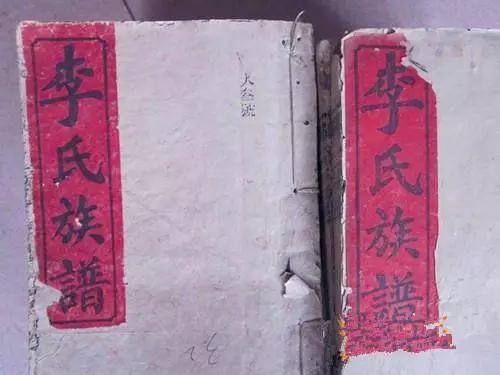 李氏族譜
李氏族譜